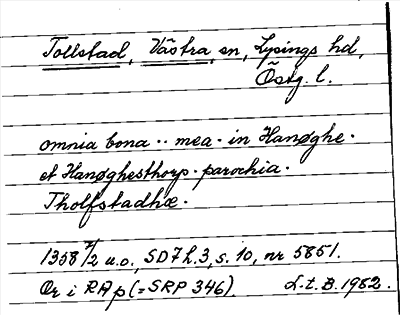 Tollstad, Västra, sn, Lysings hd,
Östg. l.
omnia bona ·· mea · in Hanøghe ·
et Hanøghesthorp · parochia ·
Tholfstadhæ ·
1358 7/2 u.o., SD 7 h. 3, s. 10, nr 5851.
Or i RAp (= SRP 346). L.t.B. 1982.